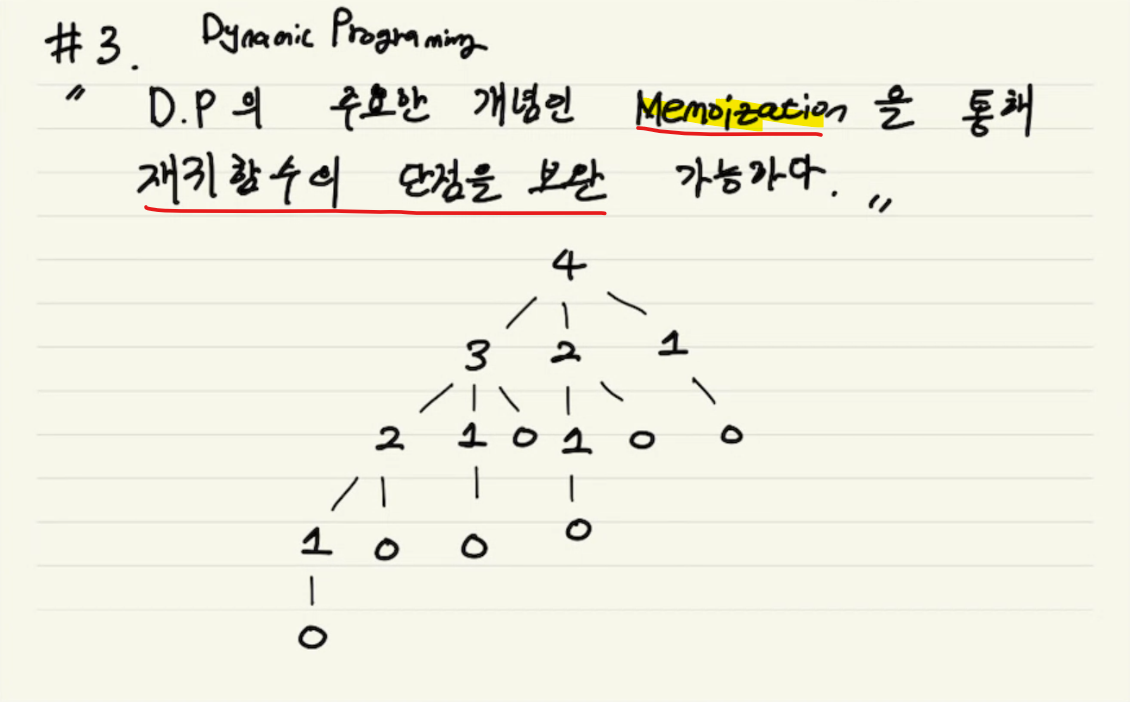 #3. Dynamic Programing
" D.P의 주요한 개념인 Memoization 을 통해
재귀함수의 단점을 보완 가능하다. "
4
3 2 1
2 1 0 1 0 0
1 0 0 0
0